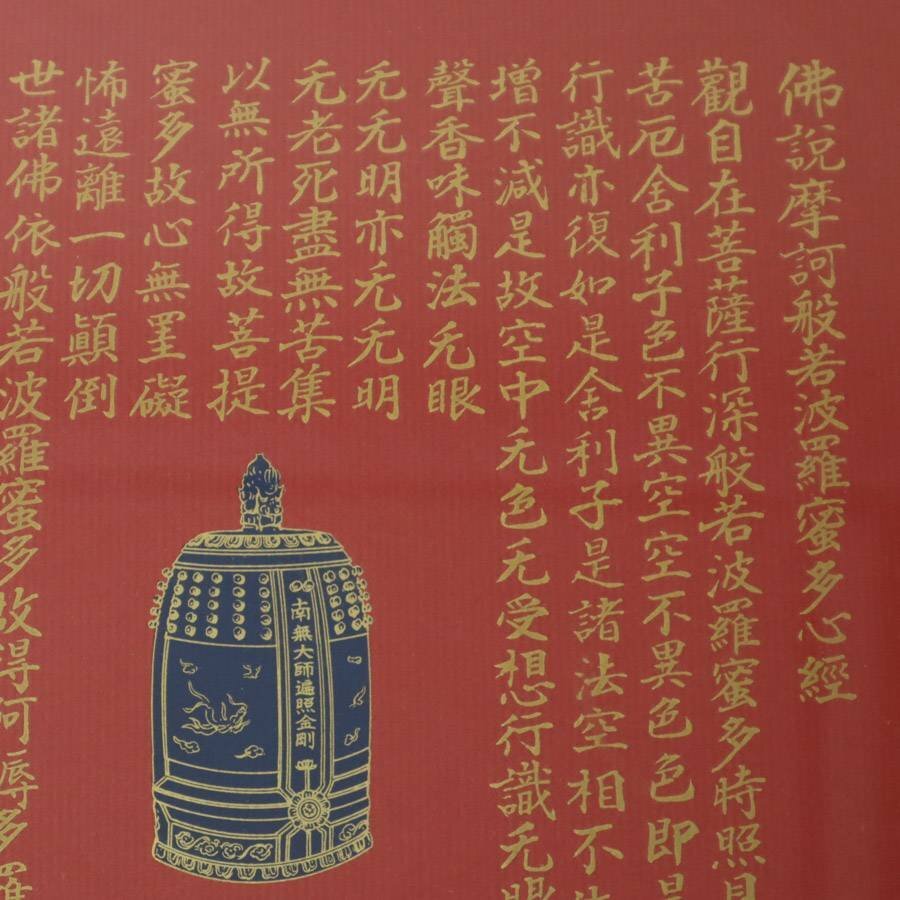 佛說摩訶般若波羅蜜多心經
觀自在菩薩行深般若波羅蜜多時照見
苦厄舍利子色不異空空不異色色即是
行識亦復如是舍利子是諸法空相不生
增不減是故空中无色无受想行識无眼
聲香味觸法无眼
无无明亦无无明
无老死盡無苦集
以無所得故菩提
蜜多故心無罣礙
怖遠離一切顛倒
世諸佛依般若波羅蜜多故得阿耨多羅
南無大師遍照金剛